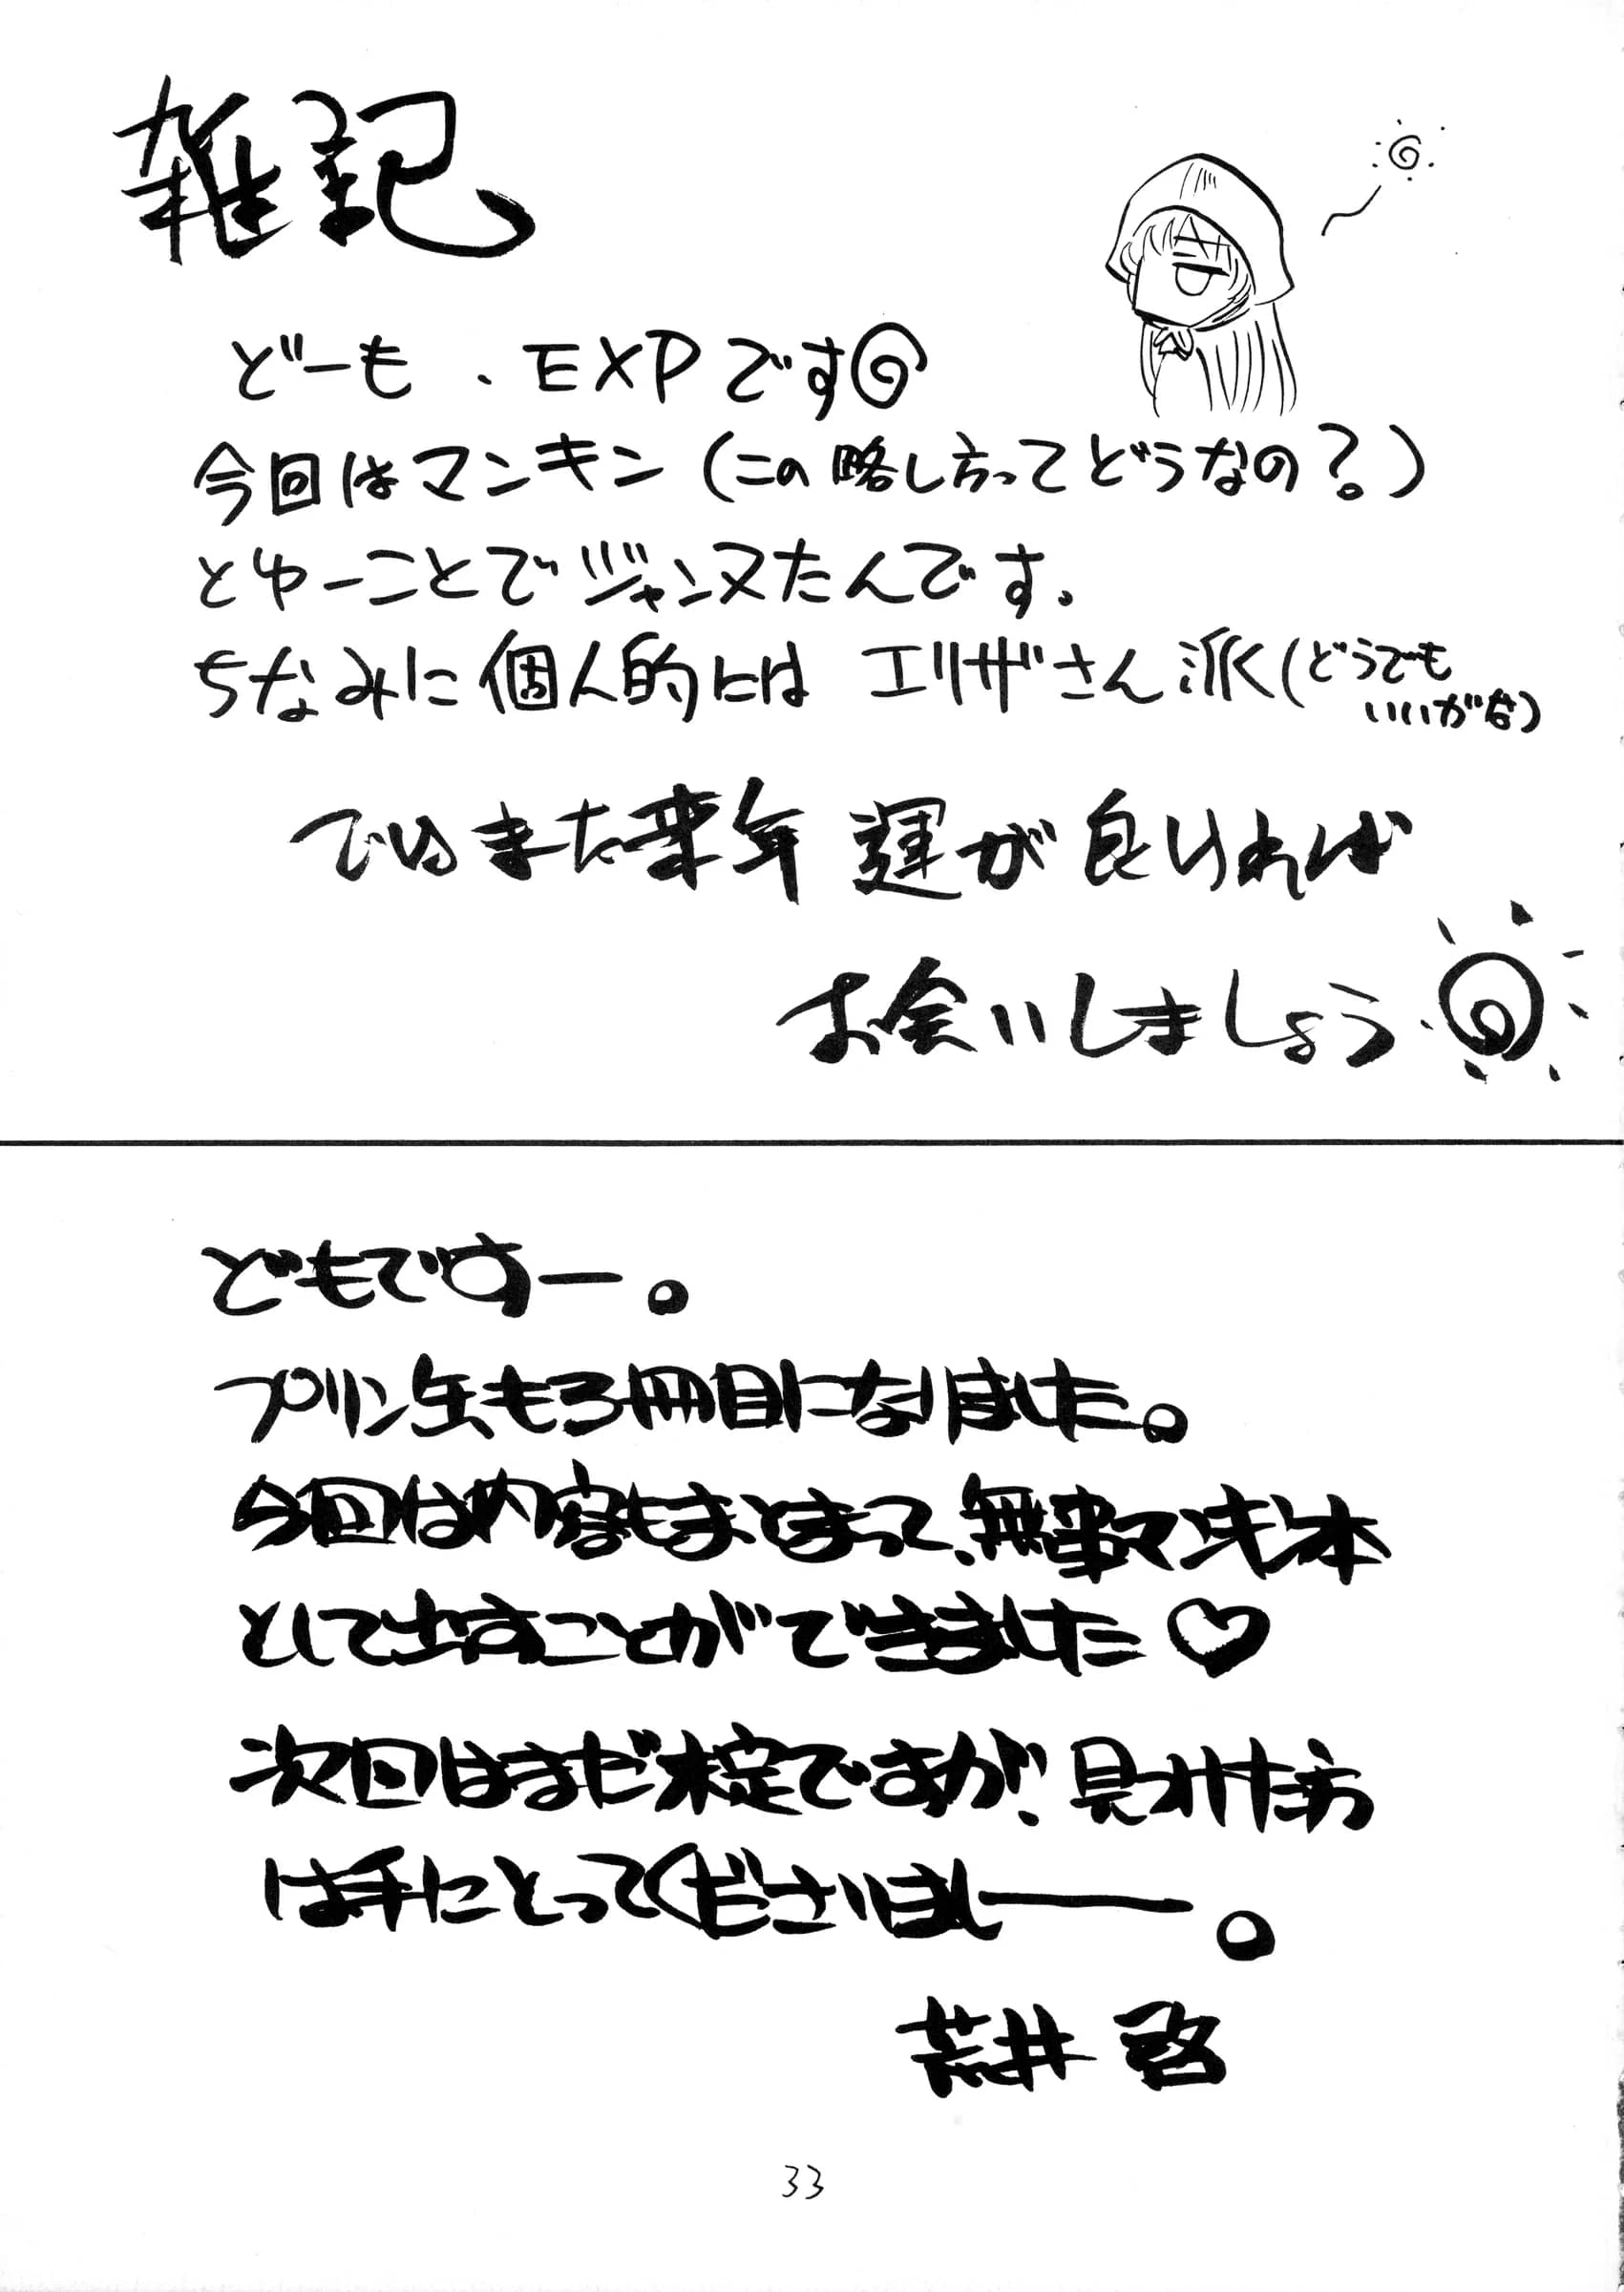 雑記
どーも、EXPです
今回はマンキン(この略し方ってどうなの?)
とゆーことでジャンヌたんです。
ちなみに個人的にはエリザさん派(どうでも
いいがな)
ではまた来年 運が良ければ
お会いしましょう
どもですー。
プリン缶も3冊目になりました。
今回は内容もまとまって、無事マンキン本
として出すことができました♡
次回はまだ未定ですが、見かけた方
は手にとってくださいましー。
荒井 啓
33